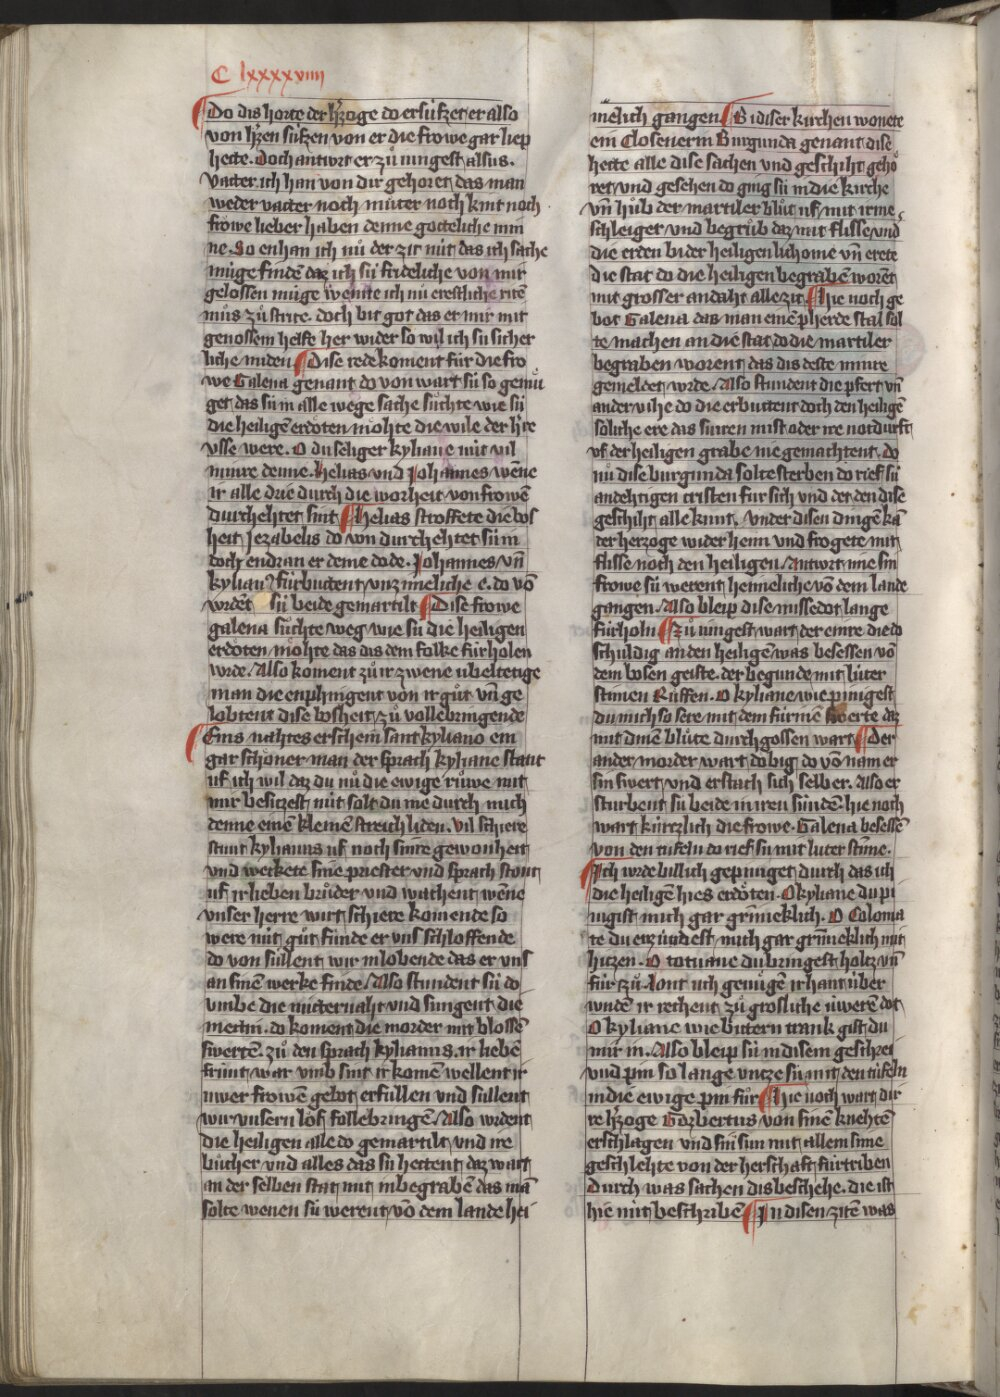 C lxxxxviiii
Do dis horte der h'zoge do ersúfzet er also
von h'zen súfzen von er die frowe gar liep
hette. Doch antwrt er zů iungest alsus.
Vatter ich han von dir gehoret das man
weder vatter noch můter noch kint noch
frowe lieber haben denne gotteliche min
ne. So enhan ich nů der zit nút das ich sache
múge finden daz ich sú frideliche von mir
gelossen múge wenne ich nů erestliche riten
můs zů strite. doch bit got das er mir mit
genossem helfe her wider so wil ich sú sicher
liche miden Dise rede koment fúr die fro
we Galena genant do von wart sú so gemů
get das sú in alle wege sache sůchte wie sú
die heiligē erdoten mohte die wile der h're
vsse were. O du seliger kyliane nút vil
minre denne. helias vnd Johannes wēne
ir alle drie durch die worheit von frowē
durchehtet sint helias stroffete die bos
heit Jezabelis do von durchehtet sú in
doch endran er deme dode. Johannes vn̄
kylian9 fúrbuttent vnzimeliche e. do vō
wrdēt sú beide gemartilt Dise frowe
galena sůchte weg wie sú die heiligen
erdoten mohte das dis dem folke fúrholen
wrde. Also koment zů ir zwene úbeltetige
man die enphingent von ir gůt vn̄ ge
lobtent dise bosheit zů vollebringende
Eins nahtes erschein sant kyliano ein
gar schoner man der sprach kyliane stant
uf ich wil daz du nů die ewige růwe mit
mir besiczest nút solt du me durch mich
denne einē kleinē streich liden. vil schiere
stunt kylianus uf noch sinre gewonheit
vnd weckete sine priester vnd sprach stont
uf ir lieben brůder vnd wachent wēne
vnser herre wirt schiere komende so
were nút gůt fúnde er vns schloffende
do von súllent wir in lobende das er vns
an sinē werke finde. Also stundent sú do
vmbe die mitternaht vnd sungent die
mettin. do koment die morder mit blossē
swertē. zů den sprach kylianus. ir liebē
frúnt war vmb sint ir komē wellent ir
úwer frowen gebot erfúllen vnd súllent
wir vnsern lof follebringē. Also wrdent
die heiligen alle do gemartilt vnd ire
bůcher vnd alles das sú hettent daz wart
an der selben stat mit in begrabē das mā
solte wenen sú werent vō dem lande hei
melich gangen Bi diser kirchen wonete
ein Closenerin Burgunda genant dise
hette alle dise sachen vnd geschiht gehō
ret vnd gesehen do ging sú in die kirche
vn̄ hůb der martiler blůt uf mit irme
schleiger vnd begrůb daz mit flisse vnd
die erden bi der heiligen lichome vn̄ erete
die stat do die heiligen begrabē worēt
mit grosser andaht alle zit hie noch ge
bot Galena das man einē pherde stal sol
te machen an die stat do die martiler
begraben worent das dis deste minre
gemeldet wrde. Also stundent die pfert vn̄
ander vihe do die erbuttent doch den heiligē
soliche ere das sú iren mist oder ire notdurft
vf der heiligen grabe nie gemachtent. do
nů dise burgunda solte sterben do rief sú
andehtigen cristen fúr sich vnd det den dise
geschiht alle kunt. vnder disen dingē kā
der herzoge wider heim vnd frogete mit
flisse noch den heiligen. Antwrt ime sin
frowe sú werent heimeliche vō dem lande
gangen. Also bleip dise missedot lange
fúrholn Zů iungest wart der einre die do
schuldig an den heiligē was besessen vō
dem bosen geiste. der begunde mit luter
stimen Růffen. O kyliane wie pinigest
du mich so sere mit dem fúrinē swerte daz
mit dinē blůte durchgossen wart Der
ander morder wart do big do vō nam er
sin swert vnd erstach sich selber. Also er
sturbent sú beide in iren súnden. hie noch
wart kúrczlich die frowe. Galena besessē
von den túfeln do rief sú mit luter stime.
Ich wrde billich gepiniget durch das ich
die heiligen hies erdoten. O kyliane du pi
nigist mich gar grimeklich. O Colona
te du enzúndest mich gar grimeklich mit
hitzen. O totuane du bringest holtz vn̄
fúr zů. Lont uch genůgē ir hant úber
wndē ir rechent zů grosliche úwerē dot
O kyliane wie bittern trank gist du
mir in. Also bleip sú in disem geschrei
vnd pin so lange vntze sú mit den túfeln
in die ewige pin fůr hie noch wart dir
re h'zoge Gozbertus von sinē knehtē
erschlagen vnd sin sun mit allem sime
geschlehte von der herschaft fúrtriben
Durch was sachen dis beschehe. die ist
hie nút beschribē In disen zitē was